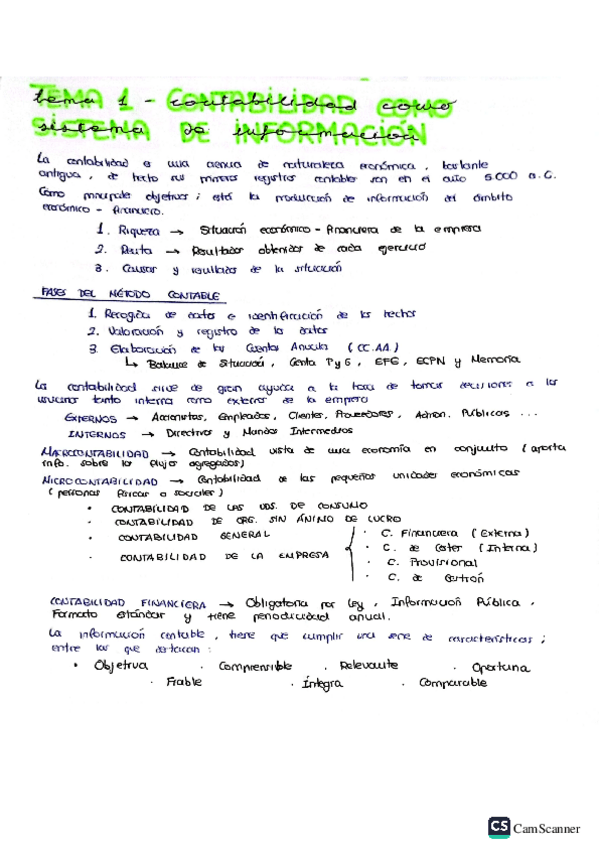 TEMA 1 - CONTABILIDAD COMO
SISTEMA DE INFORMACIÓN
La contabilidad es una ciencia de naturaleza económica, bastante
antigua, de hecho sus primeros registros contables son en el año 5.000 a.C.
Como principales objetivos; está la producción de información del ámbito
económico - financiero.
1. Riqueza → Situación económico - financiera de la empresa
2. Renta → Resultados obtenidos de cada ejercicio
3. Causas y resultados de la situación
FASES DEL MÉTODO CONTABLE
1. Recogida de datos e identificación de los hechos
2. Valoración y registro de los datos
3. Elaboración de las Cuentas Anuales (CC.AA.)
↳ Balance de Situación, Cuenta PyG, EFE, ECPN y Memoria
La contabilidad sirve de gran ayuda a la toma de decisiones a los
usuarios tanto internos como externos de la empresa
EXTERNOS → Accionistas, Empleados, Clientes, Proveedores, Admon. Públicas ...
INTERNOS → Directivos y Mandos Intermedios
MACROCONTABILIDAD → Contabilidad vista de una economía en conjunto (aporta
info. sobre los flujos agregados)
MICROCONTABILIDAD → Contabilidad de las pequeñas unidades económicas
(personas físicas o sociales)
• CONTABILIDAD DE LAS UDS. DE CONSUMO
· CONTABILIDAD DE ORG. SIN ÁNIMO DE LUCRO
· CONTABILIDAD GENERAL
· CONTABILIDAD DE LA EMPRESA
· C. Financiera (Externa)
· C. de Costes (Interna)
· C. Previsional
· C. de Gestión
CONTABILIDAD FINANCIERA → Obligatoria por ley, Información Pública,
Formato estándar y tiene periodicidad anual.
La información contable, tiene que cumplir una serie de características;
entre las que destacan:
• Objetiva · Comprensible · Relevante · Oportuna
· Fiable · Íntegra · Comparable
CS CamScanner